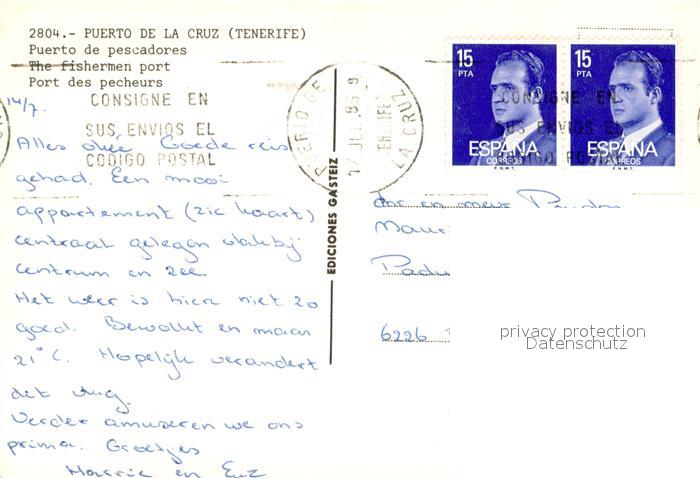 2804.- PUERTO DE LA CRUZ (TENERIFE)
Puerto de pescadores
The fishermen port
Port des pecheurs
14/7.
CONSIGNE EN
SUS ENVIOS EL
CODIGO POSTAL
PUERTO DE LA CRUZ
17 JUL. 86
TENERIFE
15 PTA
ESPAÑA
CORREOS
F.N.M.T.
15 PTA
ESPAÑA
CORREOS
F.N.M.T.
CONSIGNE EN
SUS ENVIOS EL
CODIGO POSTAL
Alles oké. Goede reis
gehad. Een mooi
appartement (zie kaart)
centraal gelegen vlakbij
centrum en zee.
Het weer is hier niet zo
goed. Bewolkt en maar
21°C. Hopelijk verandert
dit vlug.
Verder amuseren we ons
prima. Groetjes
Harrie en
EDICIONES GASTEIZ
en mevr
Maur
Padu
6226
privacy protection
Datenschutz